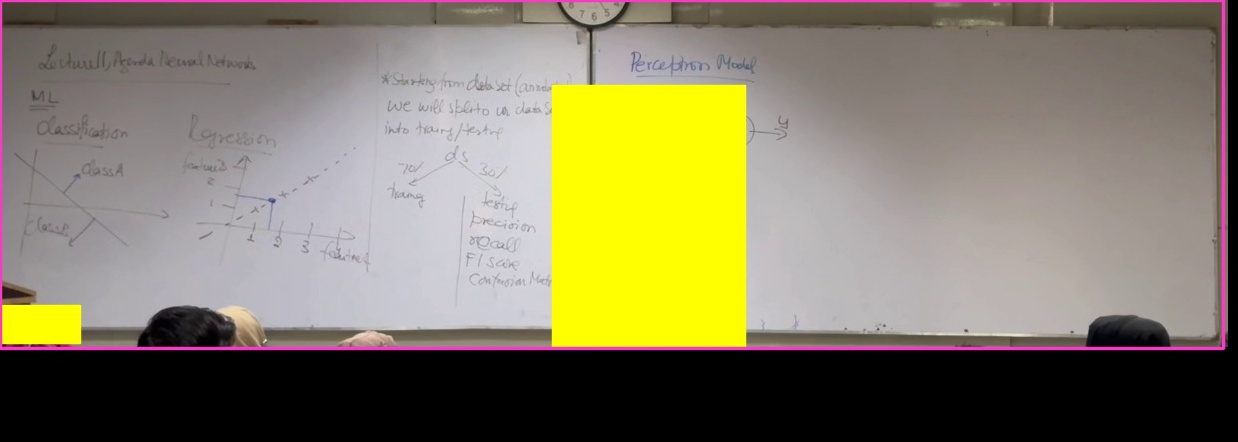 Lecture11, Agenda Neural Networks
ML
Classification
Class A
Class B
Regression
feature2
2
1
1 2 3 4
feature1
*Starting from data set (annotated)
we will split to us data Se
into traing/testing
ds
70% 30%
traing
testing
precision
recall
F1 score
Confusion Matr
Perceptron Model
y
7 6 5